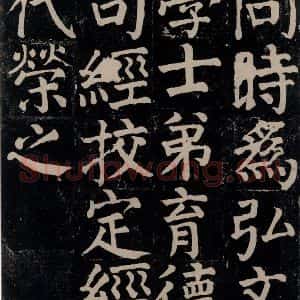 同時為弘文
學士弟育德
司經挍定經
代榮之
Shufawang.cn